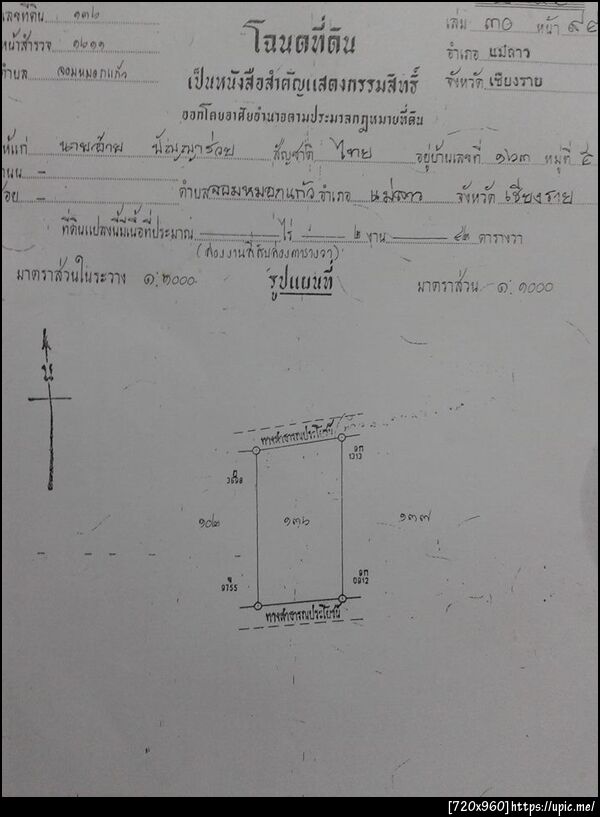 เลขที่ดิน ๑๓๖
หน้าสำรวจ ๑๒๑๑
ตำบล จอมหมอกแก้ว
โฉนดที่ดิน
เป็นหนังสือสำคัญแสดงกรรมสิทธิ์
ออกโดยอาศัยอำนาจตามประมวลกฎหมายที่ดิน
เล่ม ๓๐ หน้า
อำเภอ แม่ลาว
จังหวัด เชียงราย
ให้แก่ นาย สัญชาติ ไทย อยู่บ้านเลขที่ ๑๖๓ หมู่ที่
ถนน -
ซอย - ตำบล จอมหมอกแก้ว อำเภอ แม่ลาว จังหวัด เชียงราย
ที่ดินแปลงนี้มีเนื้อที่ประมาณ — ไร่ — ๒ งาน — ๕๒ ตารางวา
(สองงานห้าสิบสองตารางวา)
มาตราส่วนในระวาง ๑:๒๐๐๐ รูปแผนที่ มาตราส่วน ๑:๑๐๐๐
น
ทางสาธารณประโยชน์
3698
อก
1313
๑๐๒ ๑๓๖ ๑๓๗
9755
อก
0912
ทางสาธารณประโยชน์
[720x960]https://upic.me/